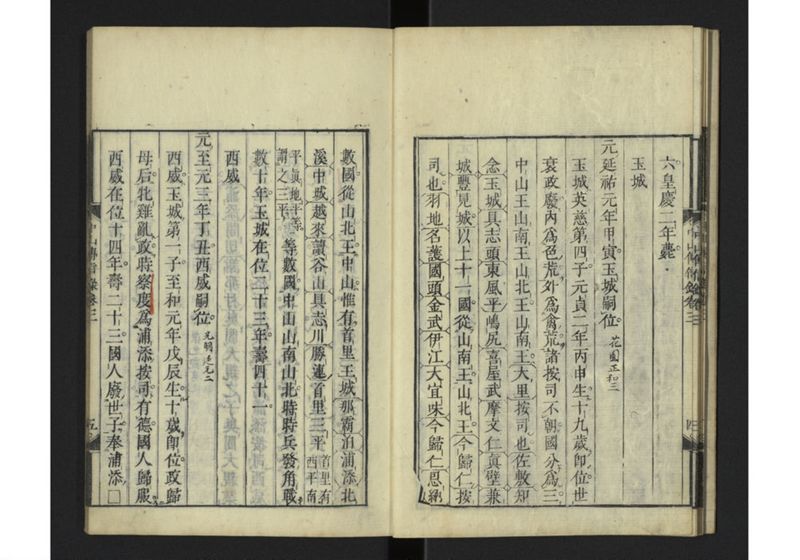 六皇慶二年薨
玉城
元延祐元年甲寅玉城嗣位花園正和三
玉城英慈第四子元貞二年丙申生十九歲即位世
衰政廢內為色荒外為禽荒諸按司不朝國分為三
中山王山南王山北王山南王大里按司也佐敷知
念玉城具志頭東風平嶋尻喜屋武摩文仁真壁兼
城豐見城以上十一國從山南王山北王今歸仁按
司也羽地名護國頭金武伊江大宜味今歸仁恩納
中山傳信錄卷三
四
數國從山北王中山惟有首里王城那霸泊浦添北
溪中城越來讀谷山具志川勝連首里三平首里有西平南
平真地平等謂之三平等數國中山山南山北時時兵發角戰
數十年玉城在位二十三年壽四十一
西威
元至元三年丁丑西威嗣位光明延元二
西威玉城第一子至和元年戊辰生十歲即位政歸
母后牝雞亂政時察度為浦添按司有德國人歸服
西威在位十四年壽二十三國人廢世子奉浦添□
中山傳信錄卷三
五